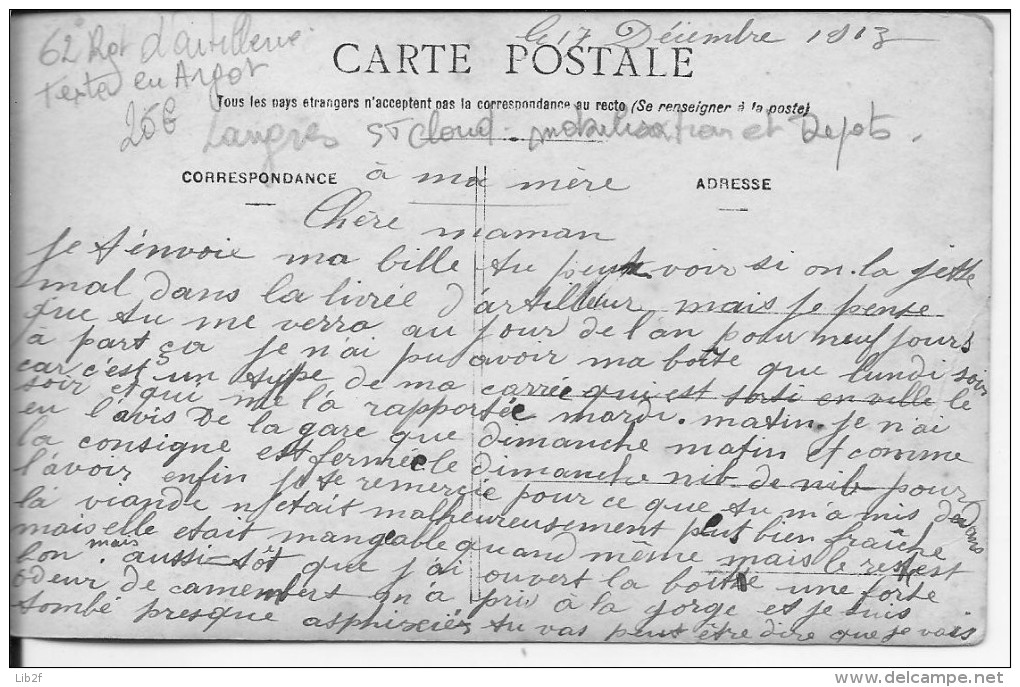 62 Rgt d'artillerie
Texte en Argot
25€
le 17 Décembre 1913
CARTE POSTALE
Tous les pays étrangers n'acceptent pas la correspondance au recto (Se renseigner à la poste)
Langres St Cloud - mobilisation et Depots.
CORRESPONDANCE
ADRESSE
à ma mère
Chère maman
Je t'envoie ma bille tu peux voir si on la jette
mal dans la livrée d'artilleur mais je pense
que tu me verra au jour de l'an pour neuf jours
à part ça je n'ai pu avoir ma boîte que lundi soir
car c'est un type de ma carrée qui est sorti en ville le
soir et qui me l'a rapportée mardi matin. je n'ai
eu l'avis De la gare que dimanche matin et comme
la consigne est fermée le dimanche nib de nib pour
l'avoir enfin je te remercie pour ce que tu m'a mis dedans
la viande n'était malheureusement plus bien fraîche
mais elle était mangeable quand même mais le reste est
bon mais aussitôt que j'ai ouvert la boîte une forte
odeur de camemberts m'a pris à la gorge et je suis
tombé presque asphixiér tu vas peut être dire que je vais
Lib2f
www.delcampe.net